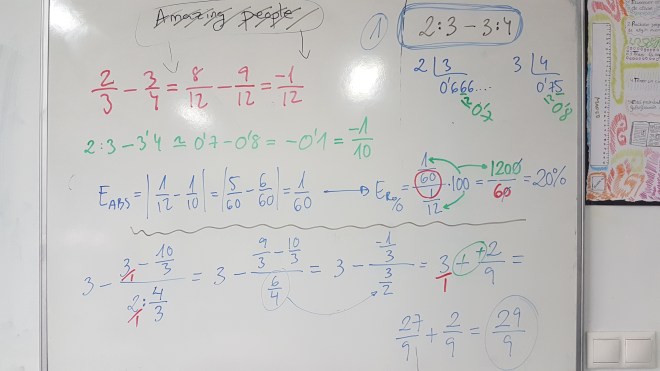 Amazing people
1 2:3 - 3:4
2 | 3 0'666.... ≈ 0'7
3 | 4 0'75 ≈ 0'8
2/3 - 3/4 = 8/12 - 9/12 = -1/12
2:3 - 3'4 ≃ 0'7 - 0'8 = -0'1 = -1/10
E_ABS = |1/12 - 1/10| = |5/60 - 6/60| = 1/60 → E_R% = (1/60)/(1/12) · 100 = 1200/60 = 20%
3 - (3/1 - 10/3)/(2/1 : 4/3) = 3 - (9/3 - 10/3)/(6/4) = 3 - (-1/3)/(3/2) = 3/1 - + + 2/9 =
27/9 + 2/9 = 29/9